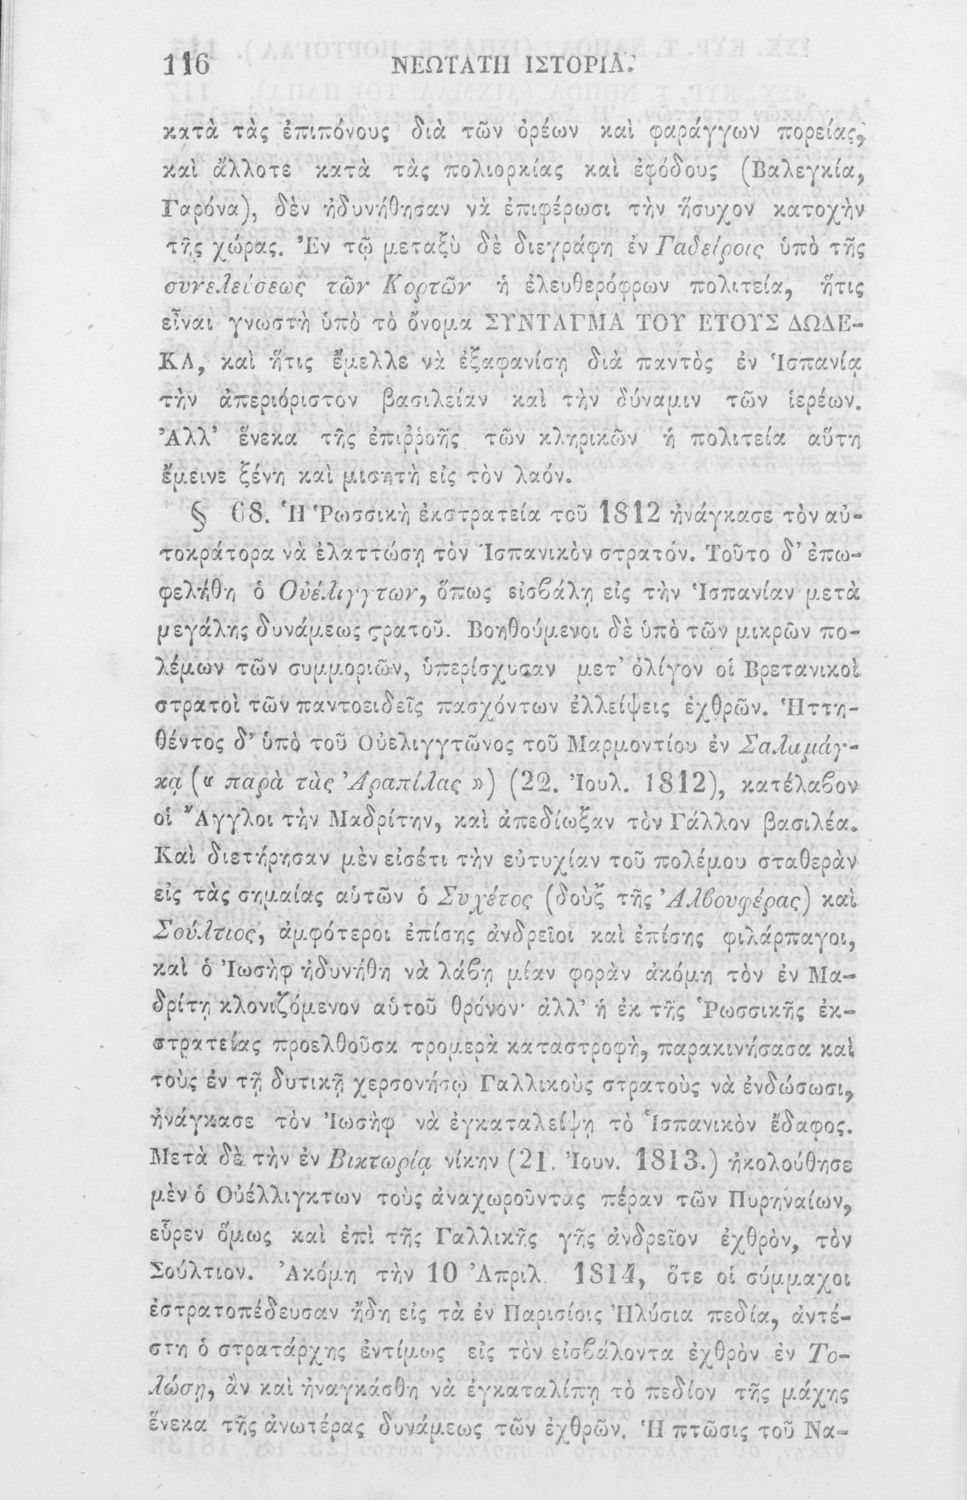 116 ΝΕΩΤΑΤΗ ΙΣΤΟΡΙΑ.
κατὰ τὰς ἐπιπόνους διὰ τῶν ὀρέων καὶ φαράγγων πορείας,
καὶ ἄλλοτε κατὰ τὰς πολιορκίας καὶ ἐφόδους (Βαλεγκία,
Γαρόνα), δὲν ἠδυνήθησαν νὰ ἐπιφέρωσι τὴν ἥσυχον κατοχὴν
τῆς χώρας. Ἐν τῷ μεταξὺ δὲ διεγράφη ἐν Γαδείροις ὑπὸ τῆς
συνελεύσεως τῶν Κορτῶν ἡ ἐλευθερόφρων πολιτεία, ἥτις
εἶναι γνωστὴ ὑπὸ τὸ ὄνομα ΣΥΝΤΑΓΜΑ ΤΟΥ ΕΤΟΥΣ ΔΩΔΕ-
ΚΑ, καὶ ἥτις ἔμελλε νὰ ἐξαφανίσῃ διὰ παντὸς ἐν Ἱσπανίᾳ
τὴν ἀπεριόριστον βασιλείαν καὶ τὴν δύναμιν τῶν ἱερέων.
Ἀλλ' ἕνεκα τῆς ἐπιῤῥοῆς τῶν κληρικῶν ἡ πολιτεία αὕτη
ἔμεινε ξένη καὶ μισητὴ εἰς τὸν λαόν.
§ 68. Ἡ Ῥωσσικὴ ἐκστρατεία τοῦ 1812 ἠνάγκασε τὸν αὐ-
τοκράτορα νὰ ἐλαττώσῃ τὸν Ἱσπανικὸν στρατόν. Τοῦτο δ' ἐπω-
φελήθη ὁ Οὐέλιγγτων, ὅπως εἰσβάλῃ εἰς τὴν Ἱσπανίαν μετὰ
μεγάλης δυνάμεως ϛρατοῦ. Βοηθούμενοι δὲ ὑπὸ τῶν μικρῶν πο-
λέμων τῶν συμμοριῶν, ὑπερίσχυσαν μετ' ὀλίγον οἱ Βρετανικοὶ
στρατοὶ τῶν παντοειδεῖς πασχόντων ἐλλείψεις ἐχθρῶν. Ἡττη-
θέντος δ' ὑπὸ τοῦ Οὐελιγγτῶνος τοῦ Μαρμοντίου ἐν Σαλαμάγ-
κᾳ (« παρὰ τὰς Ἀραπίλας ») (22. Ἰουλ. 1812), κατέλαβον
οἱ Ἄγγλοι τὴν Μαδρίτην, καὶ ἀπεδίωξαν τὸν Γάλλον βασιλέα.
Καὶ διετήρησαν μὲν εἰσέτι τὴν εὐτυχίαν τοῦ πολέμου σταθερὰν
εἰς τὰς σημαίας αὑτῶν ὁ Συχέτος (δοὺξ τῆς Ἀλβουφέρας) καὶ
Σούλτιος, ἀμφότεροι ἐπίσης ἀνδρεῖοι καὶ ἐπίσης φιλάρπαγοι,
καὶ ὁ Ἰωσὴφ ἠδυνήθη νὰ λάβῃ μίαν φορὰν ἀκόμη τὸν ἐν Μα-
δρίτῃ κλονιζόμενον αὑτοῦ θρόνον· ἀλλ' ἡ ἐκ τῆς Ῥωσσικῆς ἐκ-
στρατείας προελθοῦσα τρομερὰ καταστροφὴ, παρακινήσασα καὶ
τοὺς ἐν τῇ δυτικῇ χερσονήσῳ Γαλλικοὺς στρατοὺς νὰ ἐνδώσωσι,
ἠνάγκασε τὸν Ἰωσὴφ νὰ ἐγκαταλείψῃ τὸ Ἱσπανικὸν ἔδαφος.
Μετὰ δὲ τὴν ἐν Βικτωρίᾳ νίκην (21. Ἰουν. 1813.) ἠκολούθησε
μὲν ὁ Οὐέλλιγκτων τοὺς ἀναχωροῦντας πέραν τῶν Πυρηναίων,
εὗρεν ὅμως καὶ ἐπὶ τῆς Γαλλικῆς γῆς ἀνδρεῖον ἐχθρὸν, τὸν
Σούλτιον. Ἀκόμη τὴν 10 Ἀπριλ. 1814, ὅτε οἱ σύμμαχοι
ἐστρατοπέδευσαν ἤδη εἰς τὰ ἐν Παρισίοις Ἠλύσια πεδία, ἀντέ-
στη ὁ στρατάρχης ἐντίμως εἰς τὸν εἰσβάλοντα ἐχθρὸν ἐν Το-
λώσῃ, ἂν καὶ ἠναγκάσθη νὰ ἐγκαταλίπῃ τὸ πεδίον τῆς μάχης
ἕνεκα τῆς ἀνωτέρας δυνάμεως τῶν ἐχθρῶν. Ἡ πτῶσις τοῦ Να-